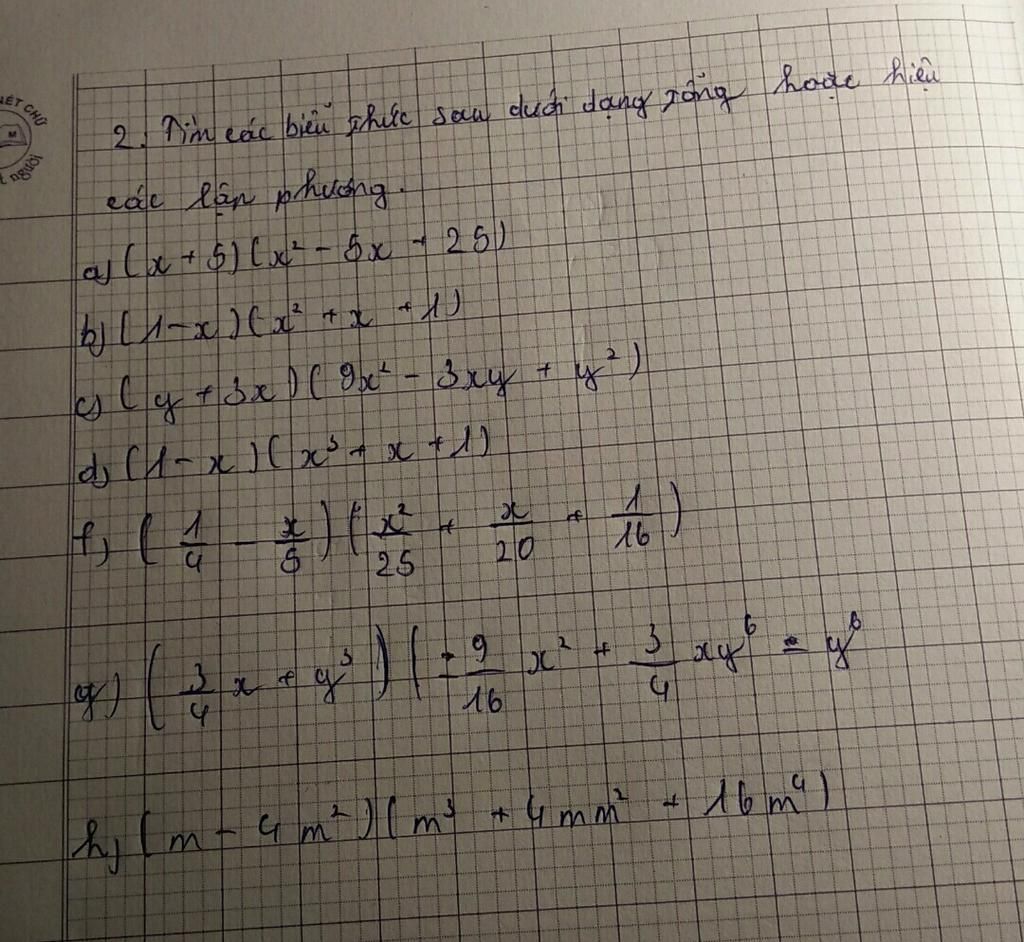 2. Tìm các biểu thức sau dưới dạng tổng hoặc hiệu
các lập phương.
a) (x + 5)(x² - 5x + 25)
b) (1 - x)(x² + x + 1)
c) (y + 3x)(9x² - 3xy + y²)
d) (1 - x)(x³ + x + 1)
f) (1/4 - x/5)(x²/25 + x/20 + 1/16)
g) (3/4 x + y³)(-9/16 x² + 3/4 xy⁶ - y⁶
h) (m - 4m²)(m³ + 4mm² + 16m⁴)